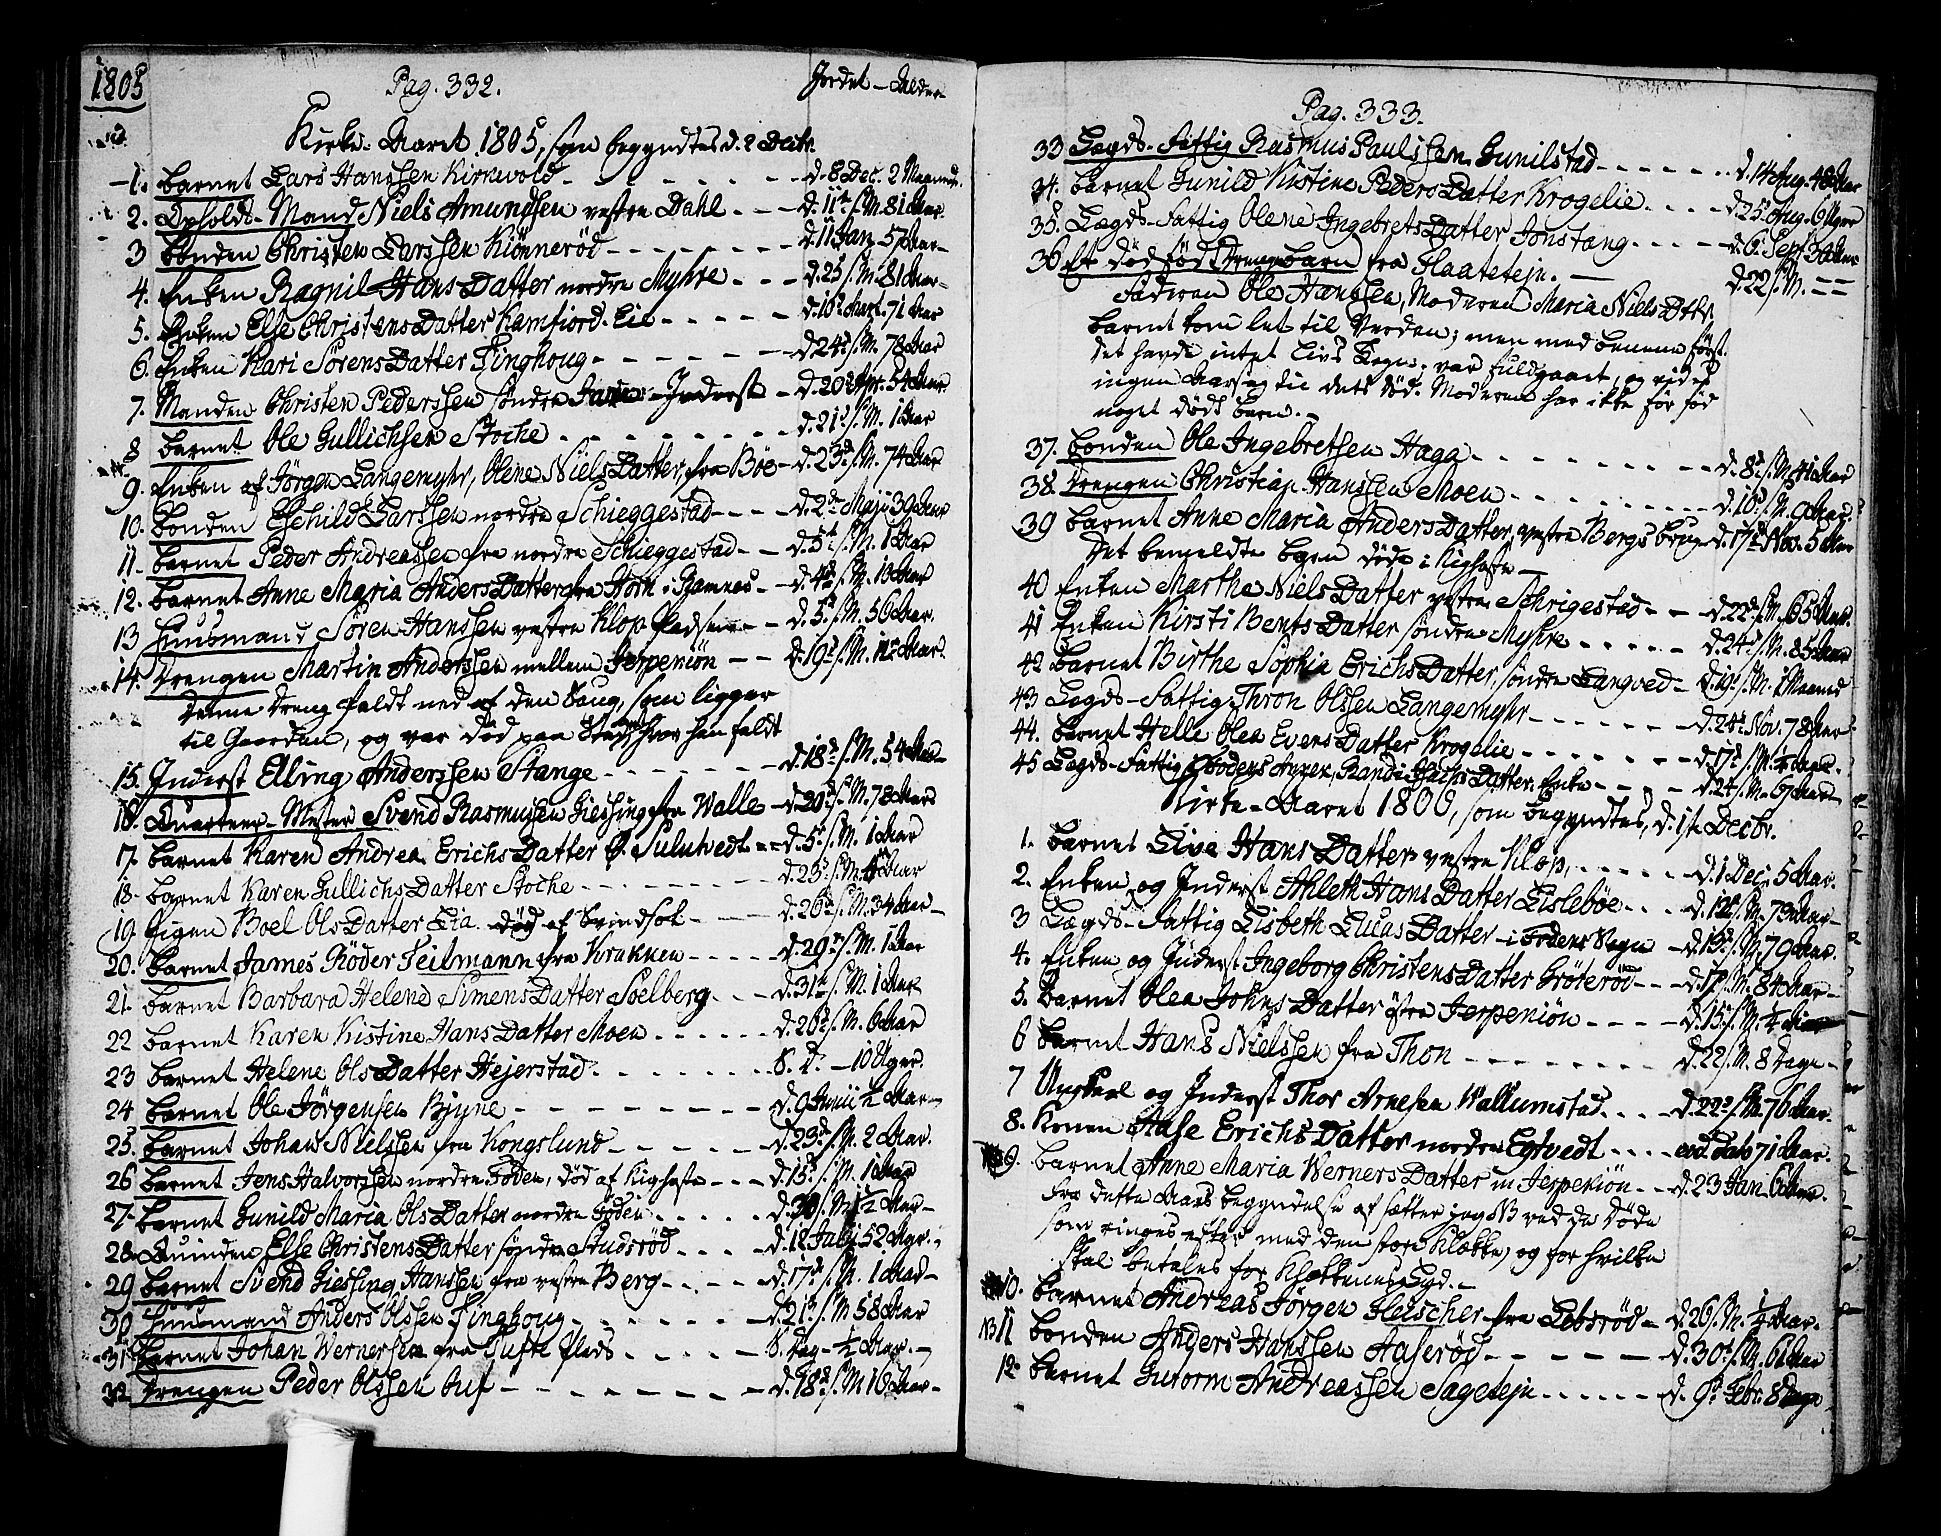 1805
Pag. 332.
Jordet - Alder
Kirke-Aaret 1805, som begyndtes d. 2 Decbr.
1. Barnet Lars Hanssen Kirkvold - - - d. 8 Dec. 2 Maaned.
2. Opholds-Mand Niels Amundsen vestre Dahl - - - d. 11te s. M. 81 Aar.
3 Bonden Christen Larssen Kiønnerød - - - d. 11 Jan. 57 Aar
4. Enken Ragnil Hans Datter nordre Myhre - - - d. 25 s. M. 81 Aar
5. Enken Else Christens Datter Kamfiord-Eie - - - d. 16de Mart. 71 Aar
6. Enken Kari Sørens Datter Tinghoug - - - d. 24 s. M. 78 Aar
7. Manden Christen Pederssen søndre - Inderst - d. 20de Apr. 54 Aar
8 Barnet Ole Gullichsen Stoche - - - d. 21 s. M. 1 Aar
9. Enken af Jørgen Langemyhr, Olene Niels Datter, fra Bøe - d. 23d s. M. 74 Aar
10. Bonden Eschild Larssen nordre Schieggestad - - - d. 2den Maji 39 Aar
11. Barnet Peder Andreassen fra nordre Schieggestad - - d. 5te s. M. 1 Aar
12. Barnet Anne Maria Anders Datter fra Horn i Ramnes - d. 4de s. M. 13 Aar
13 Huusmand Søren Hanssen vestre Klop - - d. 5te s. M. 56 Aar.
14. Drengen Martin Anderssen mellem Jerpekiøn - - d. 19d s. M. Aar.
Denne Dreng faldt ned af den Saug, som ligger
til Gaarden, og var død paa Stedet hvor han faldt
15. Inderst Elling Anderssen Stange - - - d. 18de s. M. 54 Aar
16. Quarteer-Mester Svend Rasmussen Giessing fra Walle - d. 20de s. M. 78 Aar
17. Barnet Karen Andrea Erichs Datter Ø. Sulutvedt - - d. 5te s. M. 1 Aar
18. Barnet Karen Gullichs Datter Stoche - - - d. 25 s. M. Aar
19. Pigen Boel Ols Datter Lia. død af Svindsot - - d. 26 s. M. 34 Aar
20. Barnet James Røder Teilmann fra Krakken - - - d. 29 s. M. 1 Aar
21. Barnet Barbara Helene Simens Datter Solberg - - - d. 31te s. M. 1 Aar
22 Barnet Karen Kistine Hans Datter Moen - - - d. 26 s. M. 6 Aar
23 Barnet Helene Ols Datter Hejerstad - - - S. D. - 10 Uger.
24 Barnet Ole Jørgensen Bjune - - - d. 9 Junii ½ Aar
25. Barnet Johan Nielssen fra Kongslund - - - d. 23d s. M. 2 Aar.
26 Barnet Jens Halvorssen nordre Føden, død af Kighoste - - - d. 15d s. M. 1 Aar
27. Barnet Gunild Maria Ols Datter nordre Føden - - - d. 30 s. M. 1½ Aar
28 Quinden Else Christens Datter søndre Studsrød - - - d. 12 Julij 52 Aar.
29 Barnet Svend Giessing Hanssen fra vestre Berg - - - d. 17d s. M. 1 Maad
30 Huusmand Anders Olssen Tinghoug - - - d. 21te s. M. 58 Aar
31. Barnet Johan Wernerssen fra Tufte Plads - - - S. Dag - ½ Aar.
32 Drengen Peder Olssen Auf - - - d. 18d s. M. 10 Aar
Pag. 333.
33 Lægds-Fattig Rasmus Paulssen Gunilstad - - - d. 14 Aug. 48 Aar
34. Barnet Gunild Kistine Peders Datter Krogelie - - - d. 25 Aug. 6 Uger
35. Lægds-Fattig Olene Ingebrets Datter Jonstang - - - d. 6. Sept. Aar
36 Et dødfød Drengebarn fra Flaatetejn. - d. 22 s. M. - -
Faderen Ole Hanssen, Moderen Maria Niels Dtr.
Barnet kom let til Verden; men med benene først.
det havde intet Livs Tegn. var fuldgaaet, og vides
ingen Aarsag til dets død. Moderen har ikke før fød
noget dødt barn. -
37. Bonden Ole Ingebretsen Haga - - - d. 8d s. M. 41 Aar
38. Drengen Christian Hanssen Moen - - - d. 10 s. M. 9 Aar.
39 Barnet Anne Maria Anders Datter, vestre Bergs brug - d. 17d Nov. 5 Aar
Det bemeldte barn døde i Kighoste -
40 Enken Marthe Niels Datter vestre Schrigestad - - d. 22d s. M. 65 Aar.
41 Enken Kirsti Bents Datter søndre Myhre - - - d. 24 s. M. 85 Aar
42 Barnet Birthe Sophia Erichs Datter, søndre Langved - d. 19 s. M. 1 Maaned
43 Lægds-Fattig, Thron Olssen Langemyhr - - - d. 24 Nov. 78 Aar
44. Barnet Helle Olea Evens Datter Krogelie - - - d. 17d s. M. Uger.
45 Lægds-Fattig, Randi Datter Enke - - - d. 24 s. M. 67 Aar
Kirke-Aaret 1806, som begyndtes, d. 1ste Decbr.
1. Barnet Live Hans Datter vestre Klop, - - - d. 1 Dec. 5 Aar.
2. Enken og Inderst Ahleth Hans Datter Lislebøe - - - d. 12 s. M. 73 Aar
3 Lægds-Fattig Lisbeth Lucas Datter - i Fodens Sogn - d. 13d s. M. 79 Aar.
4. Enken og Inderst Ingeborg Christens Datter Grøterød - - d. 12 s. M. 84 Aar
5. Barnet Olea Johns Datter østre Jerpekiøn - - - d. 15 s. M. ¼ Aar
6 Barnet Hans Nielssen fra Thon - - - d. 22 s. M. 8 Dage
7 Ungkarl og Inderst Thor Arnesen Wallumstad - - - d. 22d s. M. 76 Aar.
8. Konen Aase Erichs Datter nordre Egtvedt - - - eod. dato 71 Aar.
NB 9. Barnet Anne Maria Werners Datter m Jerpekiøn - - d. 23 Jan. 6 Aar.
fra dette Aars begyndelse af sætter jeg NB ved de døde
som ringes efter med den store Klokke, og for hvilke
skal betales for Klokkens Lyd. -
NB 10. Barnet Andreas Jørgen Fleischer fra Lebsrød - d. 26 s. M. ¼ Aar.
NB 11 Bonden Anders Hanssen Aaserød - - - d. 30te s. M. 61 Aar
12 Barnet Gutorm Andreassen Sagetejn - - - d. 9d Febr. 8 Dage